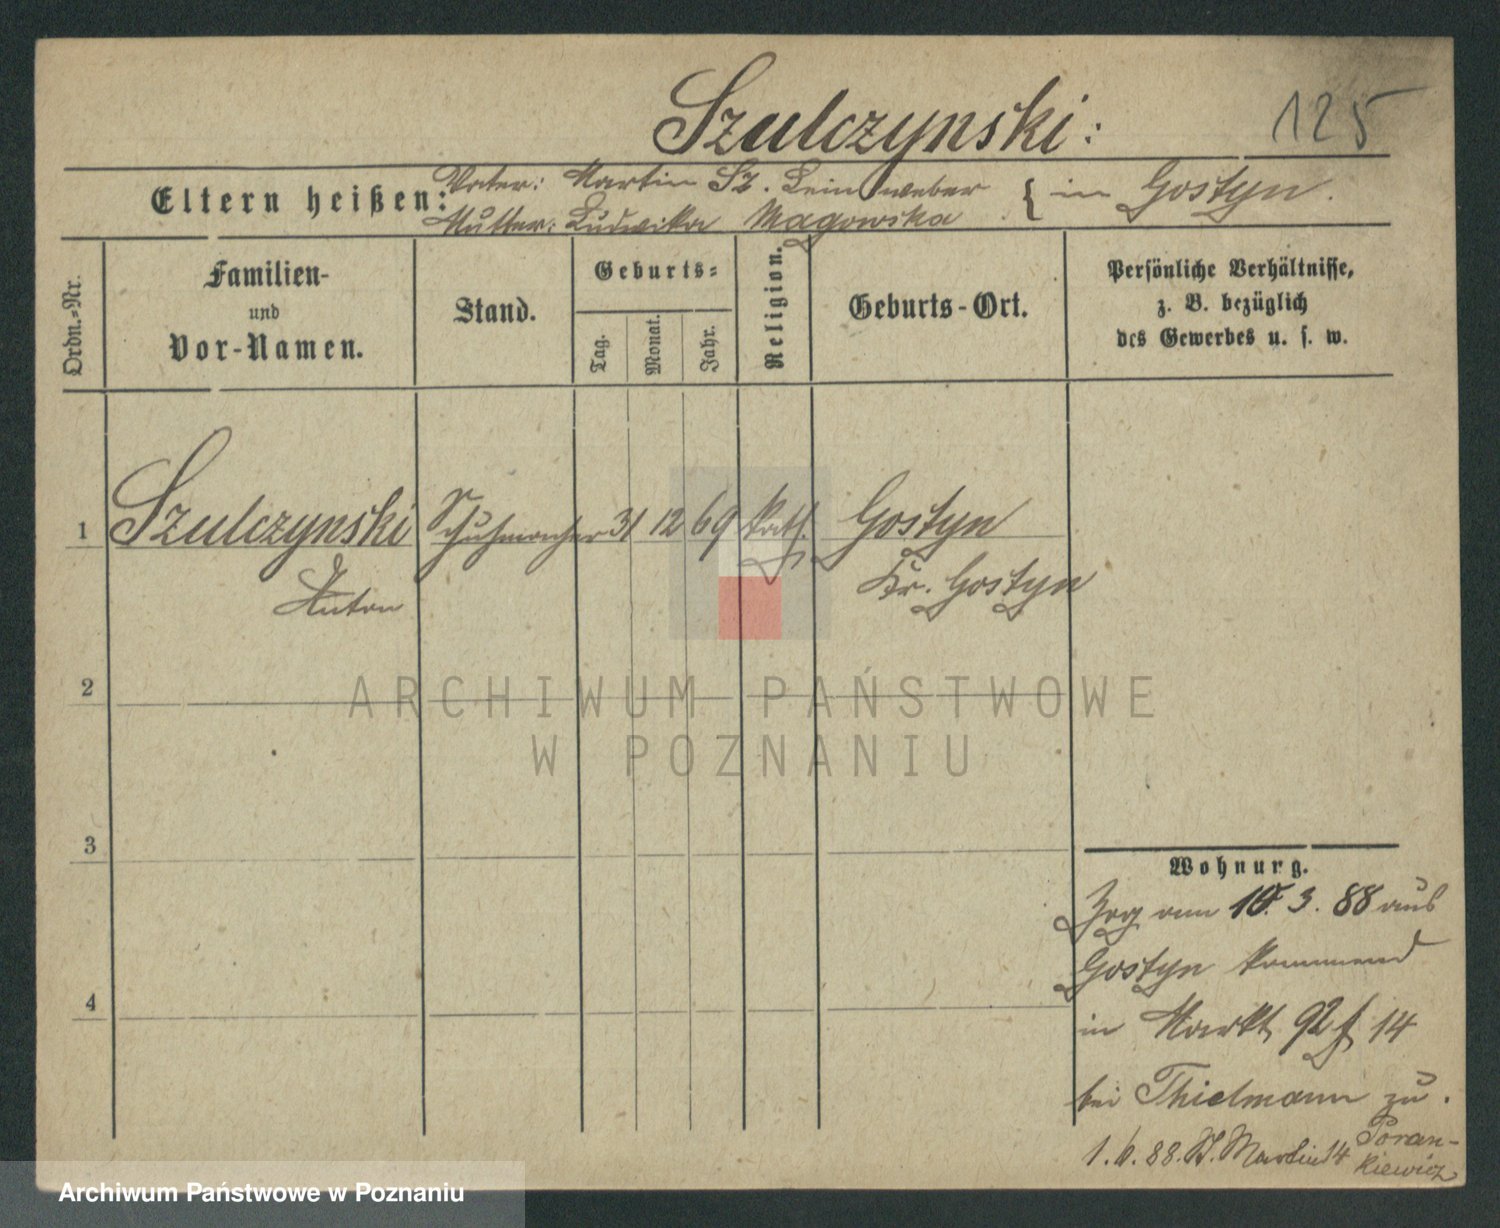 Szulczynski:
125
Eltern heißen:
Vater: Martin Sz. Leinweber
Mutter: Ludwika Magowska
} in Gostyn.
Ordn.-Nr.
Familien-
und
Vor-Namen.
Stand.
Geburts:
Tag.
Monat.
Jahr.
Religion.
Geburts-Ort.
Persönliche Verhältnisse,
z. B. bezüglich
des Gewerbes u. s. w.
1 Szulczynski Schuhmacher 31 12 69 kath. Gostyn
Anton
Kr. Gostyn
2
ARCHIWUM PAŃSTWOWE
W POZNANIU
3
4
Wohnurg.
Zog am 10. 3. 88 aus
Gostyn kommend
in Markt 92 14
bei Thielmann zu.
88. St. Martin 14 Poran-
kiewicz
Archiwum Państwowe w Poznaniu